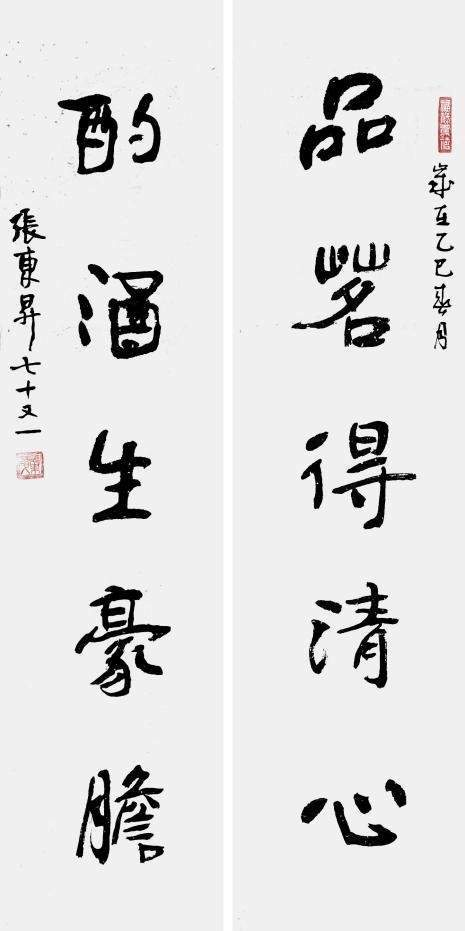 歲在乙巳春月
品茗得清心
酌酒生豪膽
張東昇七十又一